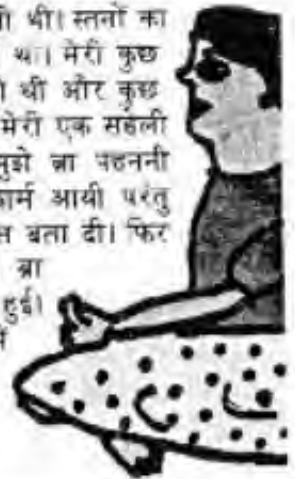 थी। स्तनों का
था। मेरी कुछ
थी और कुछ
मेरी एक सहेली
मुझे ब्रा पहननी
आयी परंतु
बता दी। फिर
ब्रा
हुई।